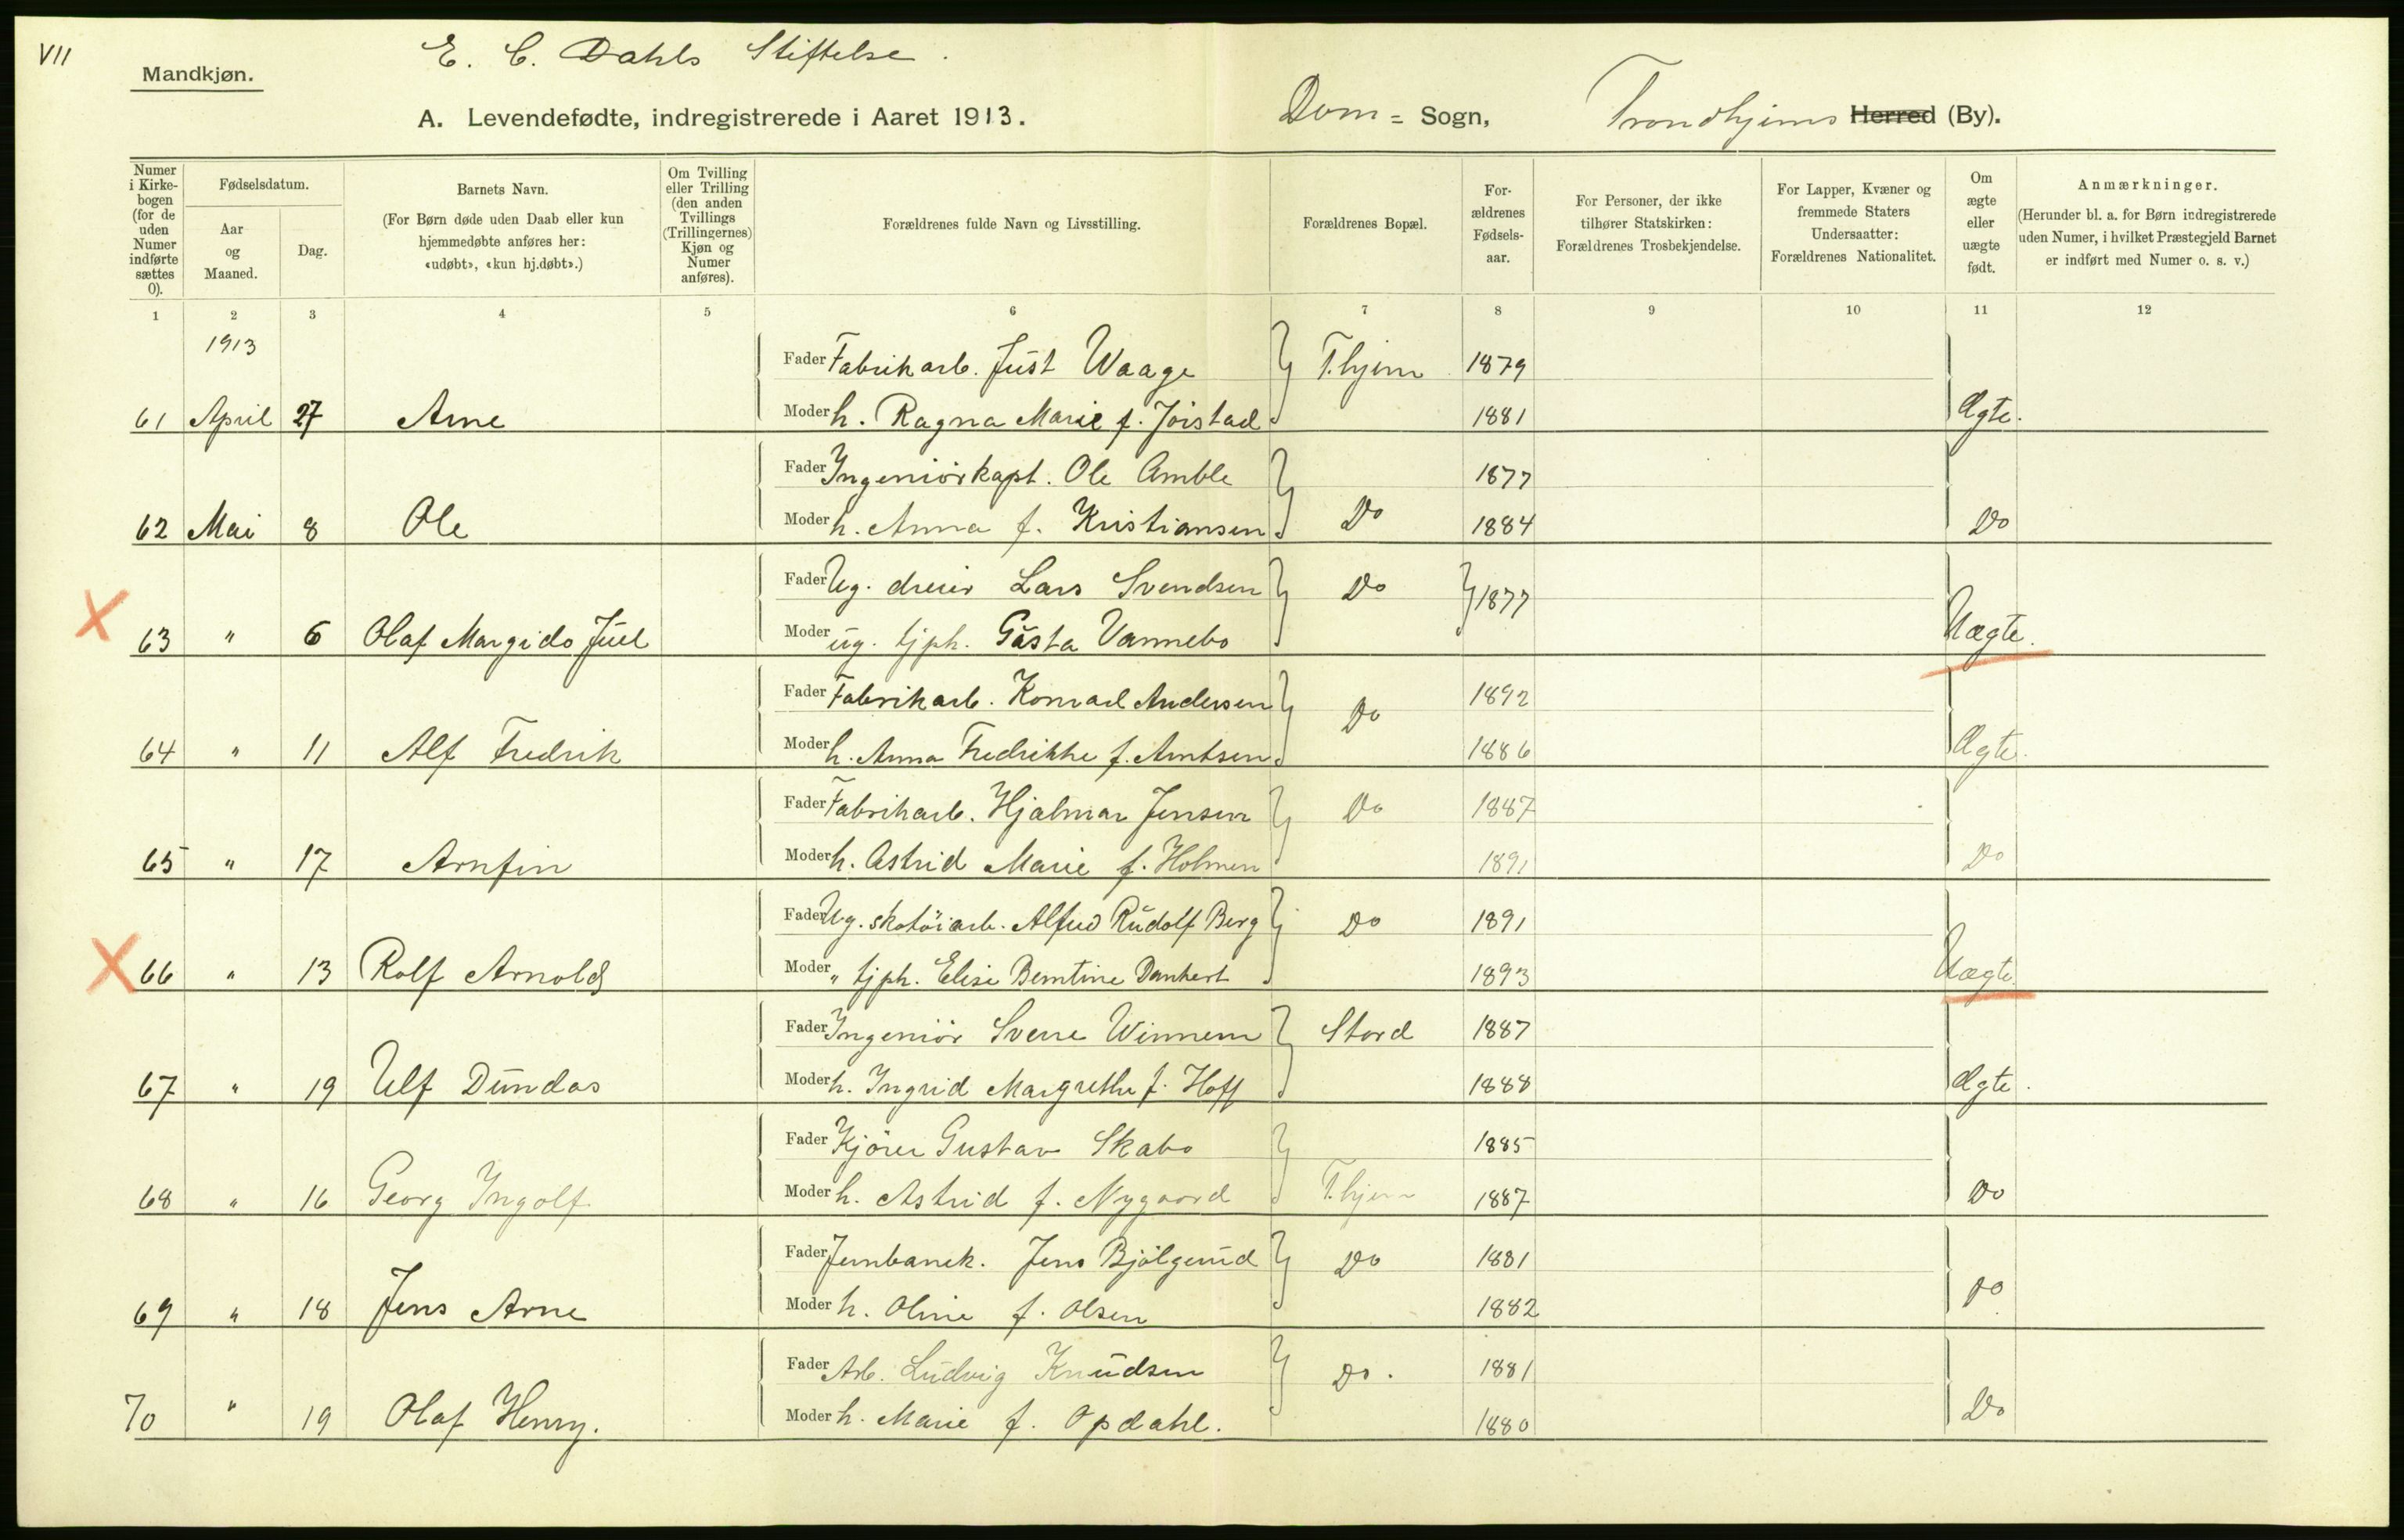 VII
E. C. Dahls Stiftelse.
Mandkjøn.
A. Levendefødte, indregistrerede i Aaret 1913. Dom= Sogn, Trondhjems Herred (By).
Numer i Kirkebogen (for de uden Numer indførte sættes 0).
Fødselsdatum.
Aar og Maaned.
Dag.
Barnets Navn.
(For Børn døde uden Daab eller kun hjemmedøbte anføres her: «udøbt», «kun hj.døbt».)
Om Tvilling eller Trilling (den anden Tvillings (Trillingernes) Kjøn og Numer anføres).
Forældrenes fulde Navn og Livsstilling.
Forældrenes Bopæl.
Forældrenes Fødselsaar.
For Personer, der ikke tilhører Statskirken: Forældrenes Trosbekjendelse.
For Lapper, Kvæner og fremmede Staters Undersaatter: Forældrenes Nationalitet.
Om ægte eller uægte født.
Anmærkninger.
(Herunder bl. a. for Børn indregistrerede uden Numer, i hvilket Præstegjeld Barnet er indført med Numer o. s. v.)
1 2 3 4 5 6 7 8 9 10 11 12
1913
Fader Fabrikarb. Just Waage T.hjem 1879
61 April 27 Arne Moder h. Ragna Marie f. Joistad 1881 Ægte.
Fader Ingeniörkapt. Ole Amble 1877
62 Mai 8 Ole Moder h. Anna f. Kristiansen Do 1884 Do
Fader Ug. dreier Lars Svendsen Do 1877
X 63 " 6 Olaf Margido Juel Moder ug. tjph. Gusta Vannebo Uægte.
Fader Fabrikarb. Konrad Andersen Do 1892
64 " 11 Alf Fredrik Moder h. Anna Fredrikke f. Arntsen 1886 Ægte.
Fader Fabrikarb. Hjalmar Jensen Do 1887
65 " 17 Arnfin Moder h. Astrid Marie f. Holmen 1891 Do
Fader Ug. skotöiarb. Alfred Rudolf Berg Do 1891
X 66 " 13 Rolf Arnold Moder " tjph. Elise Berntine Dankert 1893 Uægte.
Fader Ingeniör Sverre Winnem Stord 1887
67 " 19 Ulf Dundas Moder h. Ingrid Margrethe f. Hoff 1888 Ægte.
Fader Kjörer Gustav Skabo 1885
68 " 16 Georg Ingolf Moder h. Astrid f. Nygaard T.hjem 1887 Do
Fader Jernbanek. Jens Bjölgerud Do 1881
69 " 18 Jens Arne Moder h. Oline f. Olsen 1882 Do
Fader Arb. Ludvig Knudsen Do. 1881
70 " 19 Olaf Henry. Moder h. Marie f. Opdahl. 1880 Do